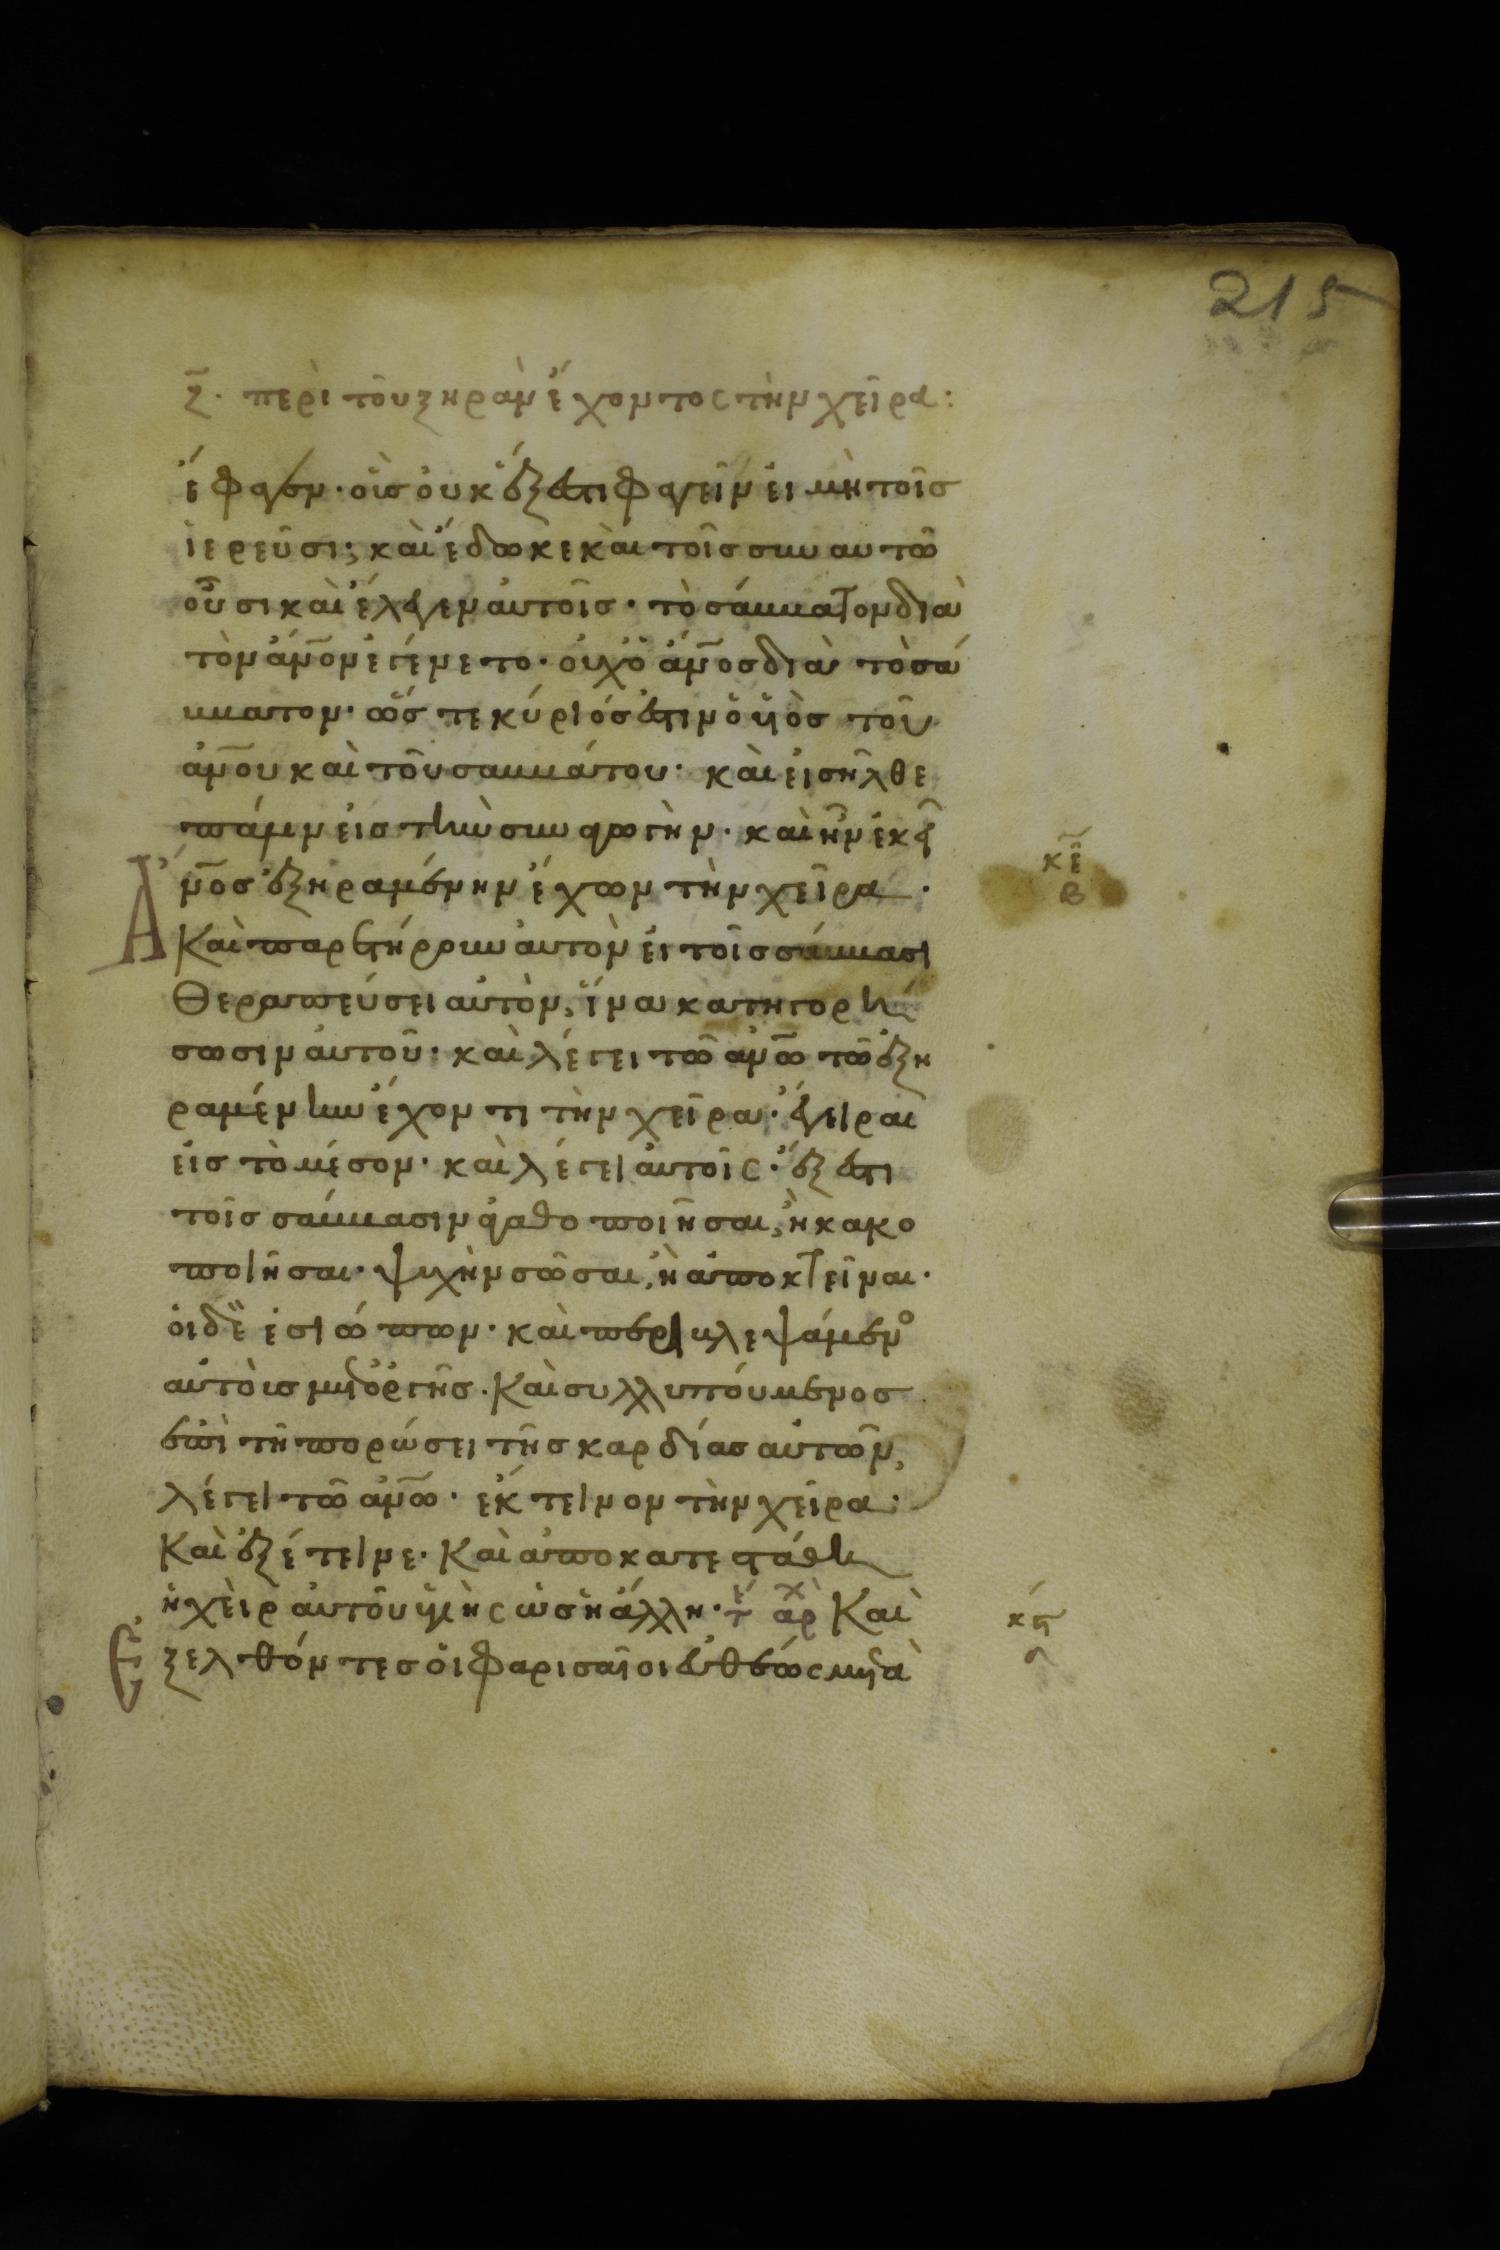 215
ζ̄· περὶ τοῦ ξηρὰν ἔχοντος τὴν χεῖρα:
ἔφαγεν· οἷς οὐκ ἔξεστι φαγεῖν εἰ μὴ τοῖς
ἱερεῦσι; καὶ ἔδωκε καὶ τοῖς συν αυτῶ
οὖσι καὶ ἔλεγεν αὐτοῖς· τὸ σάββατον διὰ
τὸν ἄν̅ον ἐγένετο· οὐχ ὁ ἄν̅ος διὰ τὸ σά
ββατον· ὥστε κύριός ἐστιν ὁ υἱὸς τοῦ
ἀν̅ου καὶ τοῦ σαββάτου· καὶ εἰσῆλθε
πάλιν εἰς τὴν συναγωγὴν· καὶ ἦν ἐκεῖ
ἄν̅ος ἐξηραμένην ἔχων τὴν χεῖρα·
Καὶ παρετήρουν αὐτὸν εἰ τοῖς σάββασι
θεραπεύσει αὐτὸν, ἵνα κατηγορή
σωσιν αὐτοῦ· καὶ λέγει τῶ ἀν̅ω τῶ ἐξη
ραμένην ἔχοντι τὴν χεῖρα· ἔγειραι
εἰς τὸ μέσον· καὶ λέγει αὐτοῖς· ἔξεστι
τοῖς σάββασιν ἀγαθοποιῆσαι, ἢ κακο
ποιῆσαι· ψυχὴν σῶσαι, ἢ ἀποκτεῖναι·
οἱ δὲ ἐσιώπων· καὶ περιβλεψάμενο
αὐτοὺς μετ' ὀργῆς· Καὶ συλλυπούμενος
ἐπὶ τῆ πορώσει τῆς καρδίας αὐτῶν,
λέγει τῶ ἀν̅ω· ἔκτεινον τὴν χεῖρα·
Καὶ ἐξέτεινε· Καὶ ἀποκατεστάθη
ἡ χεὶρ αὐτοῦ ὑγιὴς ὡς ἡ ἄλλη· τέ ἀρχ Καὶ
Ἐξελθόντες οἱ φαρισαῖοι εὐθέως μετὰ
κε
β
κη